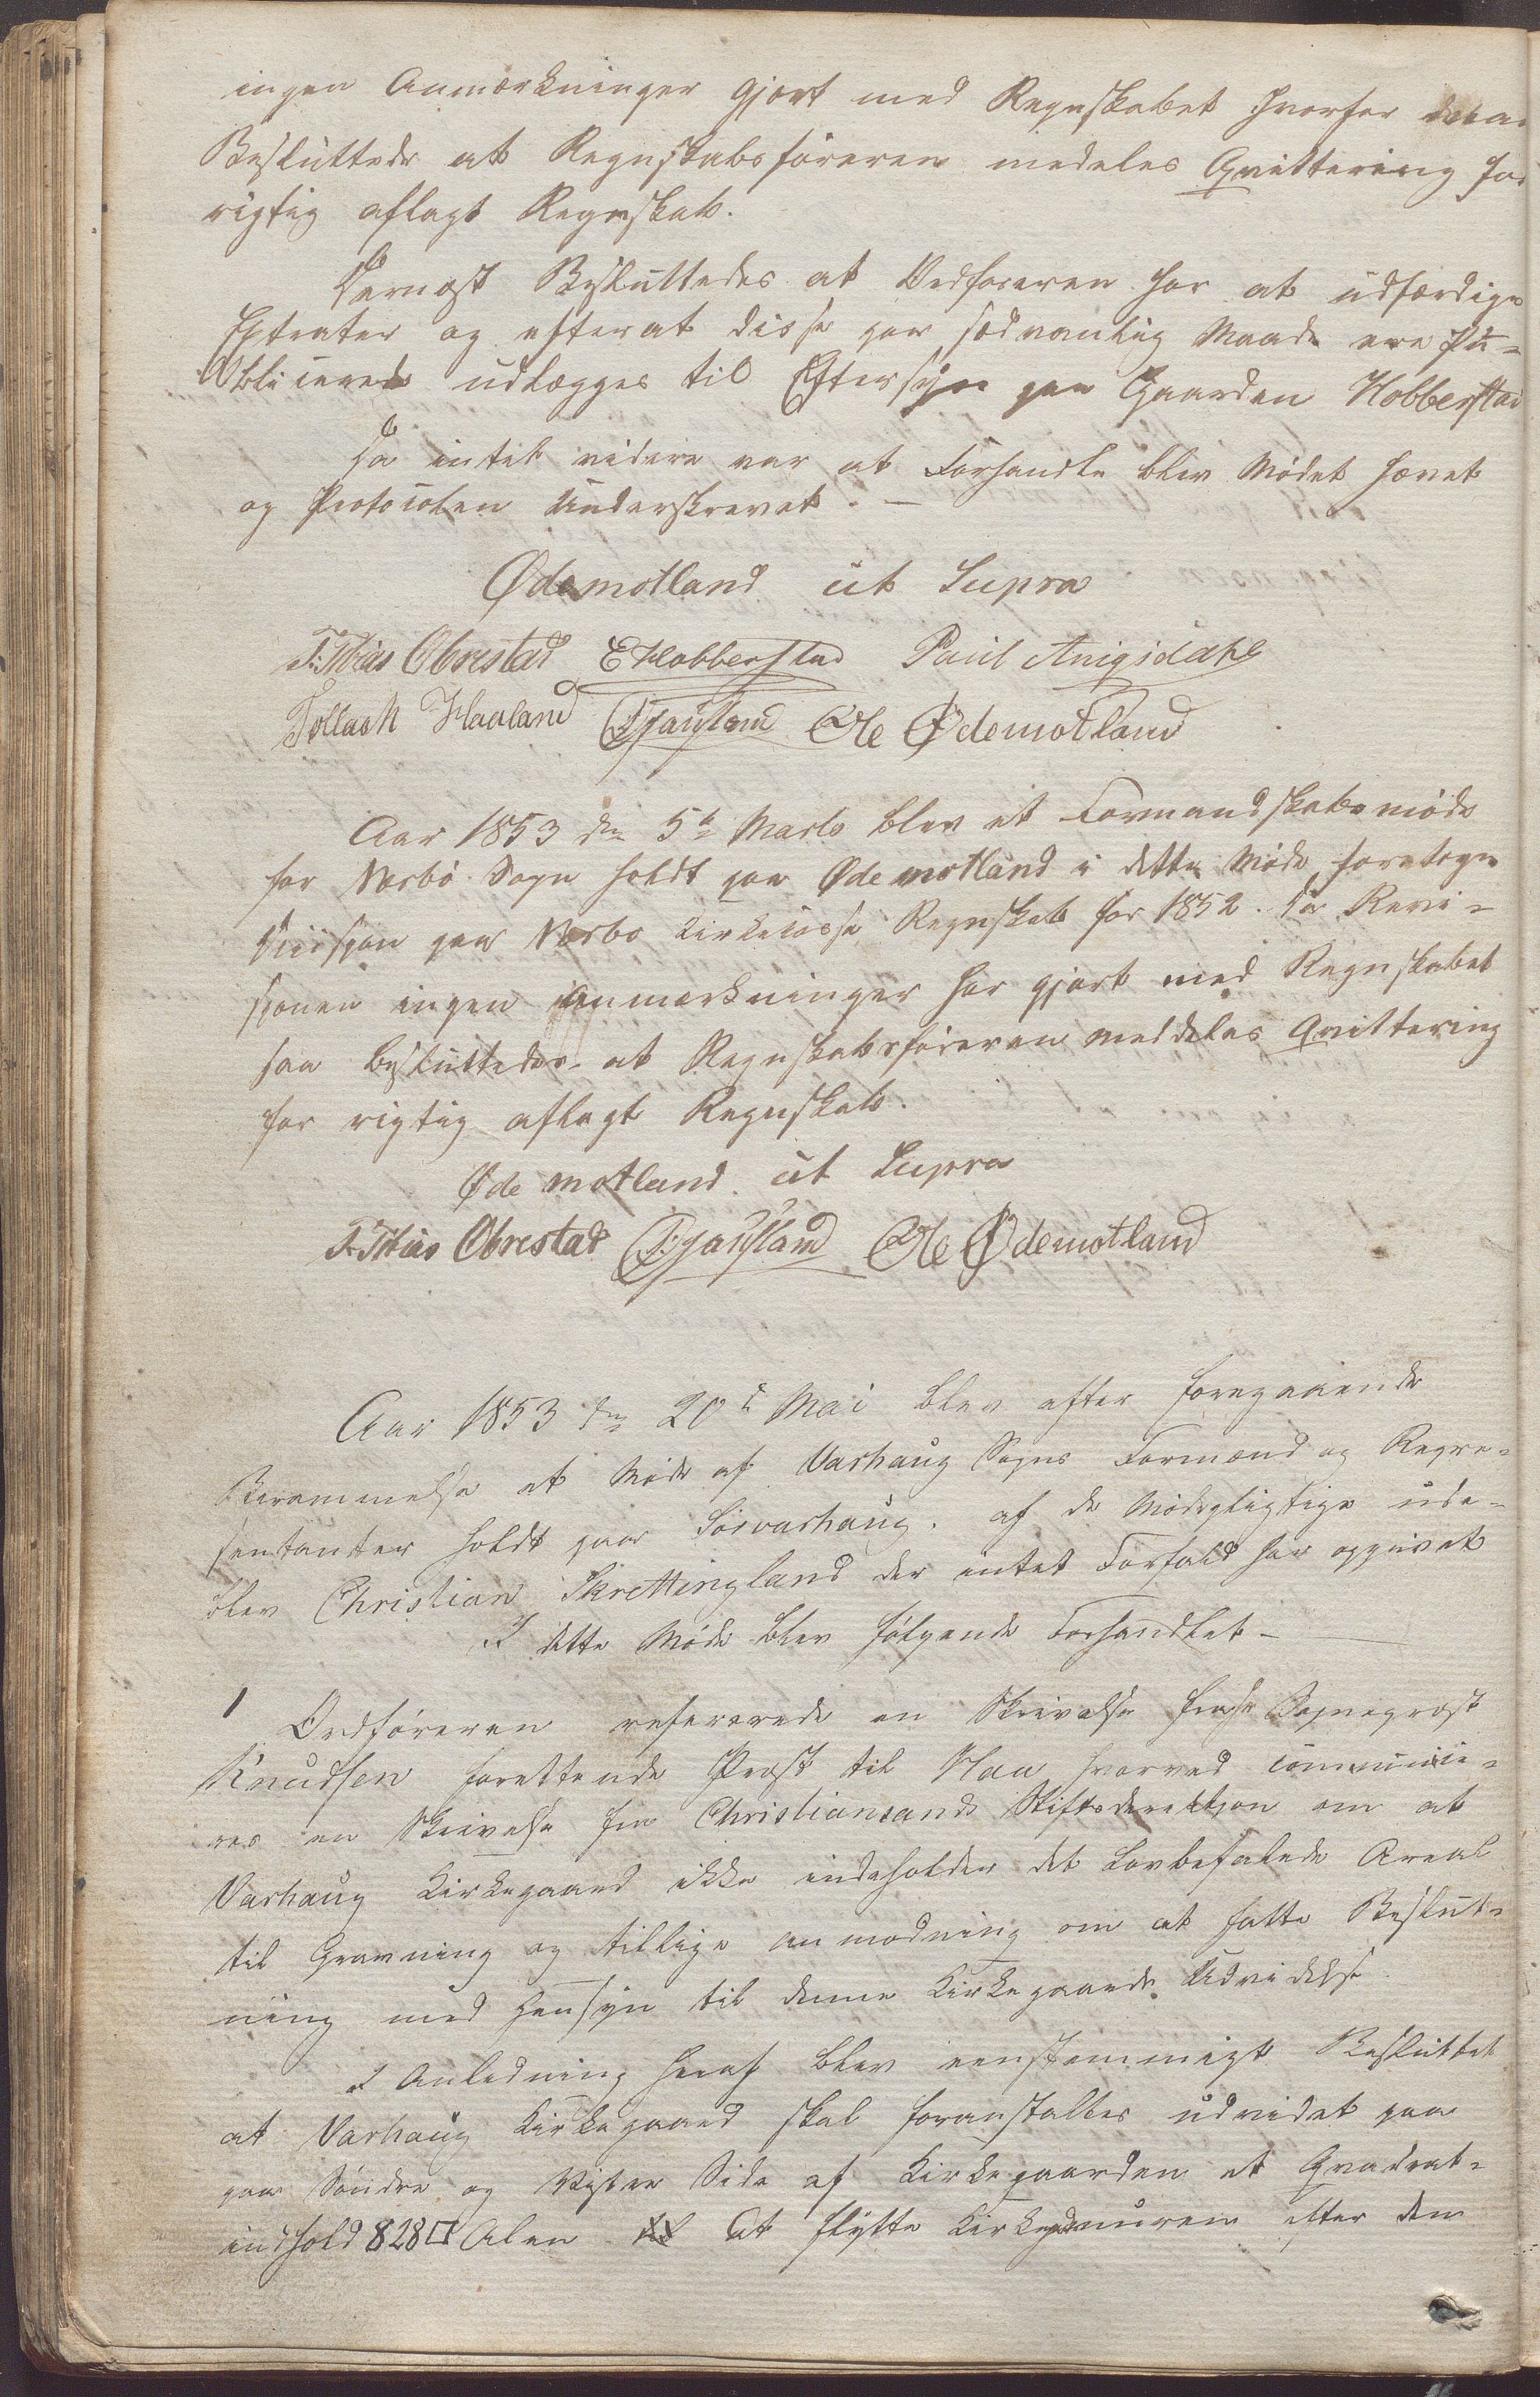 ingen Anmærkninger gjort med Regnskabet hvorfor
Besluttede at Regnskabsføreren meddeles Qvittering for
rigtig aflagt Regnskab.
Dernæst Besluttedes at Ordføreren har at udfærdige
Extrater og efterat disse paa sædvanlig Maade ere Pu-
blicerede udlægges til Eftersyn paa Gaarden Hobberstad
Da intet videre var at Forhandle blev Mødet hævet
og Protocolen Underskrevet. —
Ødemotland ut Supra
T. Tobias Obrestad E Hobberstad Paul Aniqsdahl
Tollach Haaland Ole Ødemotland
Aar 1853 den 5te Marts blev et Formandskabsmøde
for Nærbø Sogn holdt paa Ødemotland i dette Møde foretoges
paa Nærbø Kirkecasse Regnskab for 1852. Da Revi-
sionen ingen Anmærkninger har gjort med Regnskabet
saa besluttedes at Regnskabsføreren meddeles Qvittering
for rigtig aflagt Regnskab.
Ødemotland ut Supra
T. Tobias Obrestad Ole Ødemotland
Aar 1853 den 20de Mai blev efter foregaaende
Berammelse et Møde af Varhaug Sogns Formænd og Repræ-
sentanter holdt paa Sørvarhaug. af de Mødepligtige ude-
blev Christian Skrettingland der intet Forfald har opgivet
I dette Møde blev følgende Forhandlet —
1 Ordføreren refererede en Skrivelse fra Hr Sognepræst
Knudsen forrettende Præst til Haa hvorved communice-
res en Skrivelse fra Christiansands Stiftsdirektion om at
Varhaug Kirkegaard ikke indeholder det Lovbefalede Areal
til Gravning og tillige anmodning om at fatte Beslut-
ning med Hensyn til denne Kirkegaards Udvidelse
I Anledning heraf blev eenstemmigt Besluttet
at Varhaug Kirkegaard skal foranstaltes udvidet paa
paa Søndre og Vestre Side af Kirkegaarden et Qvadrat-
indhold 828 □ Alen At flytte Kirkegaardmuren efter den